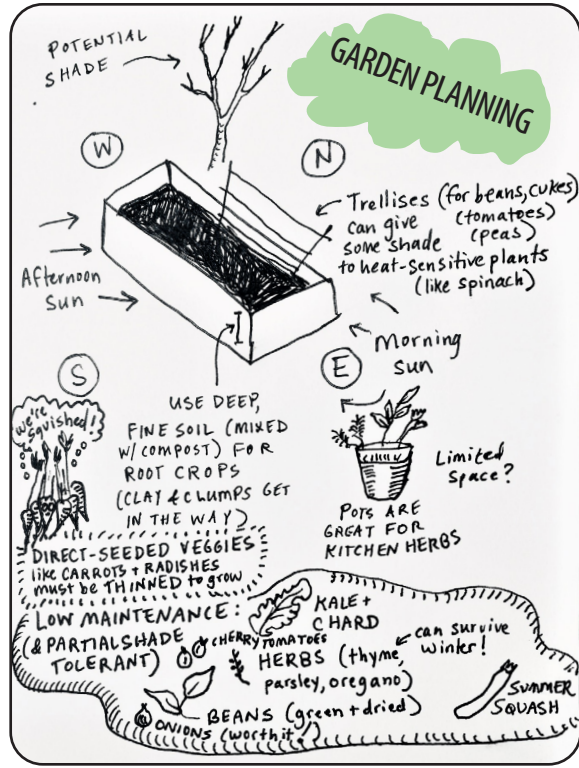 POTENTIAL
SHADE
GARDEN PLANNING
W
N
Trellises (for beans, cukes)
can give (tomatoes)
some shade (peas)
to heat-sensitive plants
(like spinach)
Afternoon
Sun
Morning
Sun
S
E
we're
squished!
USE DEEP,
FINE SOIL (MIXED
W/ COMPOST) FOR
ROOT CROPS
(CLAY & CLUMPS GET
IN THE WAY)
Limited
Space?
POTS ARE
GREAT FOR
KITCHEN HERBS
DIRECT-SEEDED VEGGIES
like CARROTS + RADISHES
must be THINNED to grow
LOW MAINTENANCE:
(& PARTIAL SHADE
TOLERANT)
KALE +
CHARD
can survive
winter!
CHERRY TOMATOES
HERBS (thyme,
parsley, oregano)
BEANS (green + dried)
ONIONS (worth it!)
SUMMER
SQUASH